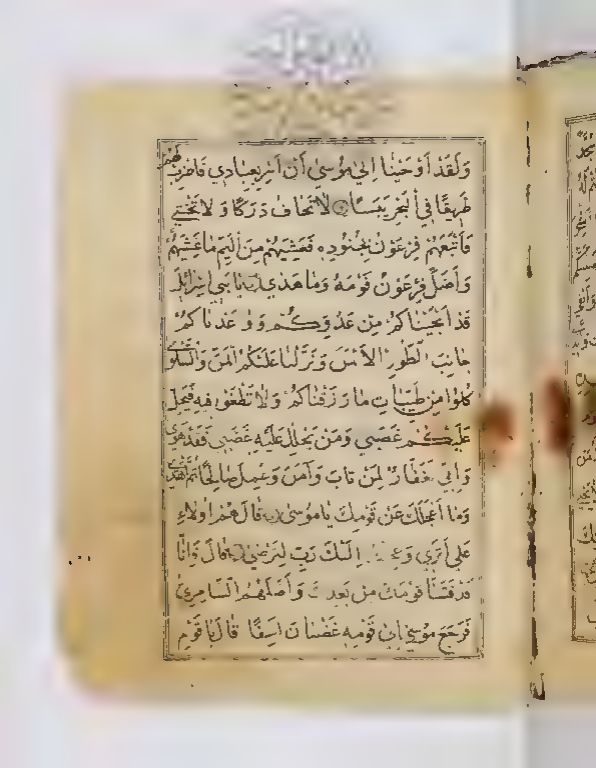 وَلَقَدْ اَوْحَيْنَا اِلٰى مُوسٰى اَنْ اَسْرِ بِعِبَادِي فَاضْرِبْ لَهُمْ
طَرِيقًا فِي الْبَحْرِ يَبَسًا لَا تَخَافُ دَرَكًا وَلَا تَخْشٰى
فَاَتْبَعَهُمْ فِرْعَوْنُ بِجُنُودِهِ فَغَشِيَهُمْ مِنَ الْيَمِّ مَا غَشِيَهُمْ
وَاَضَلَّ فِرْعَوْنُ قَوْمَهُ وَمَا هَدٰى يَا بَنِي اِسْرَائِلَ
قَدْ اَنْجَيْنَاكُمْ مِنْ عَدُوِّكُمْ وَوٰعَدْنَاكُمْ
جَانِبَ الطُّورِ الْاَيْمَنَ وَنَزَّلْنَا عَلَيْكُمُ الْمَنَّ وَالسَّلْوٰى
كُلُوا مِنْ طَيِّبَاتِ مَا رَزَقْنَاكُمْ وَلَا تَطْغَوْا فِيهِ فَيَحِلَّ
عَلَيْكُمْ غَضَبِي وَمَنْ يَحْلِلْ عَلَيْهِ غَضَبِي فَقَدْ هَوٰى
وَاِنِّي لَغَفَّارٌ لِمَنْ تَابَ وَاٰمَنَ وَعَمِلَ صَالِحًا ثُمَّ اهْتَدٰى
وَمَا اَعْجَلَكَ عَنْ قَوْمِكَ يَا مُوسٰى قَالَ هُمْ اُولَاءِ
عَلٰى اَثَرِي اِلَيْكَ رَبِّ لِتَرْضٰى قَالَ فَاِنَّا
قَدْ فَتَنَّا قَوْمَكَ مِنْ بَعْدِكَ وَاَضَلَّهُمُ السَّامِرِيُّ
فَرَجَعَ مُوسٰى اِلٰى قَوْمِهِ غَضْبَانَ اَسِفًا قَالَ يَا قَوْمِ